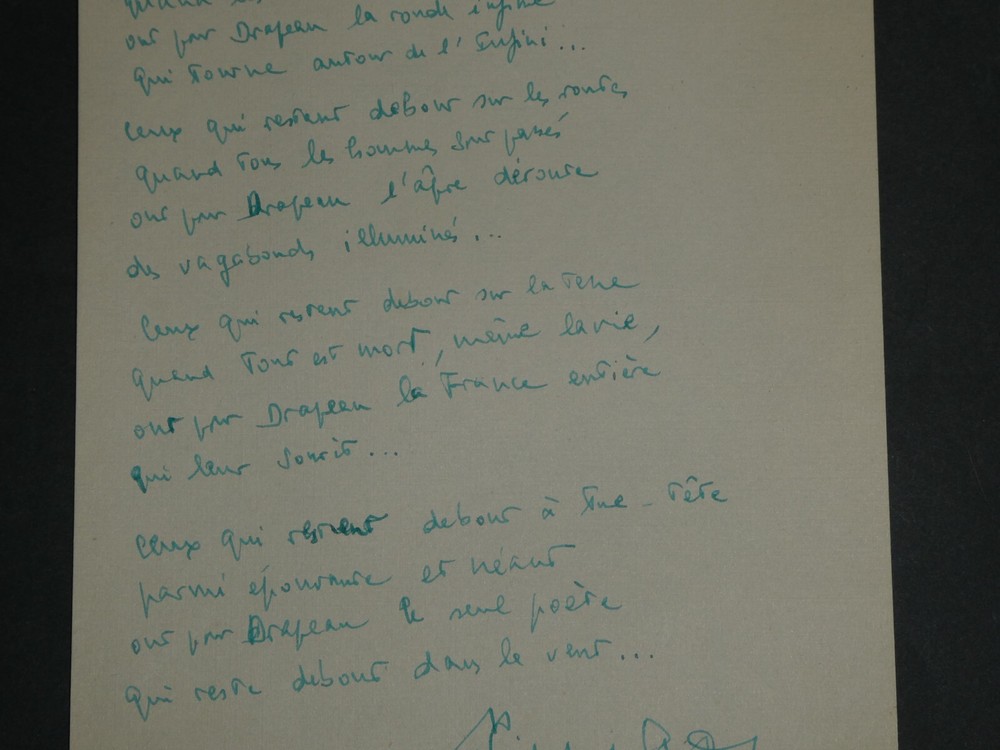 quand
ont pour Drapeau la ronde infinie
qui tourne autour de l'Infini...
Ceux qui restent debout sur les routes
quand tous les hommes sont passés
ont pour Drapeau l'âpre déroute
des vagabonds illuminés...
Ceux qui restent debout sur la Terre
quand tout est mort, même la vie,
ont pour Drapeau la France entière
qui leur sourit...
Ceux qui restent debout à tue-tête
parmi épouvante et néant
ont pour Drapeau le seul poète
qui reste debout dans le vent...